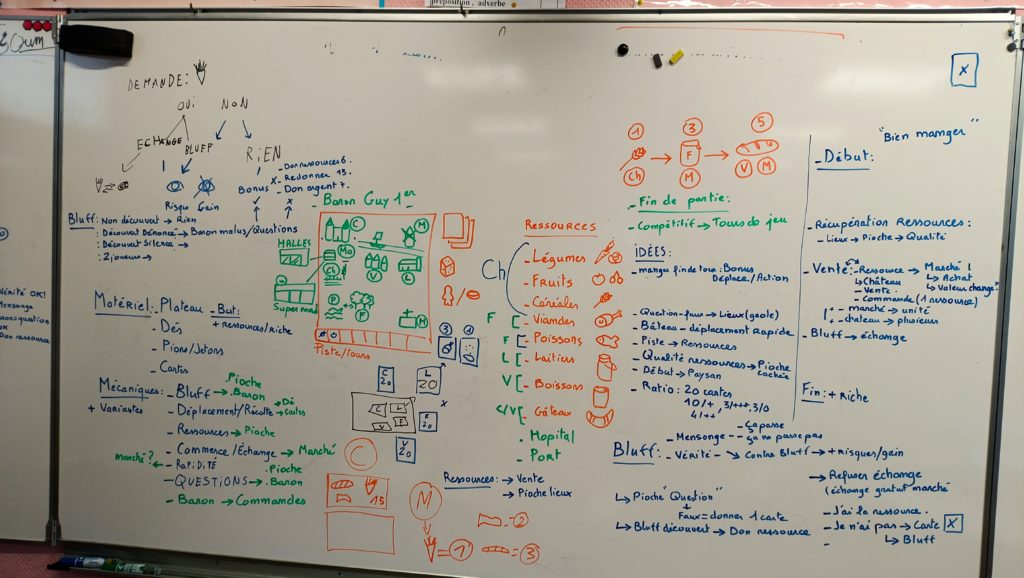 préposition, adverbe
DEMANDE:
OUI NON
ECHANGE BLUFF
RIEN
Risqu Gain
Bonus
- Don ressources 6.
x - Redonner 13.
- Don argent 7.
Bluff: Non découvert → Rien
: Découvert Dénoncé → Baron malus/Questions
: Découvert Silence →
: 2 joueurs →
Vérité OK!
Mensonge
Don ressource
Matériel: - Plateau
- Dés
- Pions/Jetons
- Cartes
- But:
+ ressources/riche
Mécaniques:
+ Variantes
- Bluff → .Pioche
.Baron
- Déplacement/Récolte → Dé
Cartes
- Ressources → Pioche
- Commerce/Echange → Marché
Marché? ← - RAPIDITÉ
- QUESTIONS → .Pioche
.Baron
- Baron → Commandes
- Baron Guy 1er
HALLES
Super marché
C
M
Ma
Ch
V
L
P
F
M
Piste/tours
3 1
C
20
L
20
F
20
V
20
C L
V F
C
15
M
= 1
= 2
= 3
RESSOURCES
Ch
- Légumes
- Fruits
- Céréales
F [ - Viandes
F [ - Poissons
L [ - Laitiers
V [ - Boissons
C/V [ - Gâteaux
- Hopital
- Port
Ressources: → Vente
→ Pioche lieux
1 3 5
F
Ch M V M
- Fin de partie:
- Compétitif → Tours de jeu
IDÉES:
- mangu fin de tour: Bonus
Déplace/Action
- Question-faux → Lieux (geole)
- Bâteau - déplacement rapide
- Piste → Ressources
- Qualité ressources → Pioche
cachée
- Début → Paysan
- Ratio: 20 cartes
10/+, 3/+++, 3/0
4/++
Bluff: - Mensonge - - ça passe
- ça ne passe pas
- Vérité - → Contre Bluff → + risques/gain
↳ Pioche "Question"
↳ Faux = donner 1 carte
↳ Bluff découvert → Don ressource
X
"Bien manger"
- Début:
- Récupération Ressources:
- Lieux → Pioche → Qualité
- Vente: - Ressource → Marché!
- Château ↳ Achat
- Vente. ↳ Valeurs change?
- Commande (1 ressource)
+ - marché → unité
+ - chateau → plusieurs
- Bluff → échange
Fin: + Riche
→ Refuser échange
(échange gratuit marché
- J'ai la ressource.
- Je n'ai pas → Carte X
↳ Bluff